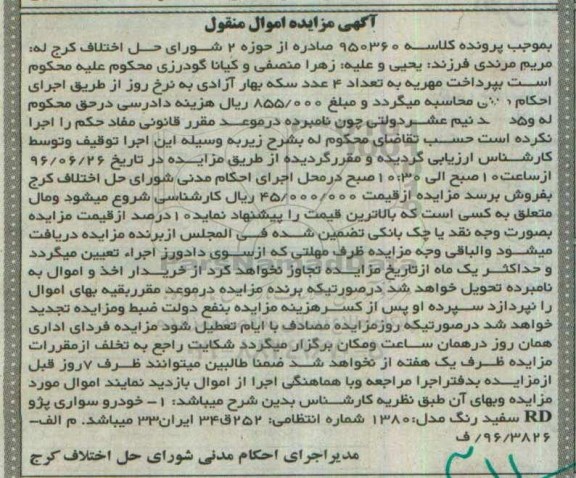 آگهی مزایده اموال منقول
بموجب پرونده کلاسه ۹۵۰۳۶۰ صادره از حوزه ۲ شورای حل اختلاف کرج له:
مریم مرندی فرزند: یحیی و علیه: زهرا منصفی و کیانا گودرزی محکوم علیه محکوم
است بپرداخت مهریه به تعداد ۴ عدد سکه بهار آزادی به نرخ روز از طریق اجرای
احکام محاسبه میگردد و مبلغ ۸۵۵/۰۰۰ ریال هزینه دادرسی درحق محکوم
له و نیم عشردولتی چون نامبرده درموعد مقرر قانونی مفاد حکم را اجرا
نکرده است حسب تقاضای محکوم له بشرح زیربه وسیله این اجرا توقیف وتوسط
کارشناس ارزیابی گردیده و مقررگردیده از طریق مزایده در تاریخ ۹۶/۰۶/۲۶
ازساعت۱۰صبح الی ۱۰:۳۰صبح درمحل اجرای احکام مدنی شورای حل اختلاف کرج
بفروش برسد مزایده ازقیمت ۴۵/۰۰۰/۰۰۰ ریال کارشناسی شروع میشود ومال
متعلق به کسی است که بالاترین قیمت را پیشنهاد نماید۱۰درصد ازقیمت مزایده
بصورت وجه نقد یا چک بانکی تضمین شده فی المجلس ازبرنده مزایده دریافت
میشود والباقی وجه مزایده ظرف مهلتی که ازسوی دادورز اجراء تعیین میگردد
و حداکثر یک ماه ازتاریخ مزایده تجاوز نخواهد کرد از خریدار اخذ و اموال به
نامبرده تحویل خواهد شد درصورتیکه برنده مزایده درموعد مقرربقیه بهای اموال
را نپردازد سپرده او پس از کسرهزینه مزایده بنفع دولت ضبط ومزایده تجدید
خواهد شد درصورتیکه روزمزایده مصادف با ایام تعطیل شود مزایده فردای اداری
همان روز درهمان ساعت ومکان برگزار میگردد شکایت راجع به تخلف ازمقررات
مزایده ظرف یک هفته از نخواهد شد ضمنا طالبین میتوانند ظرف ۷روز قبل
ازمزایده بدفتراجرا مراجعه وبا هماهنگی اجرا از اموال بازدید نمایند اموال مورد
مزایده وبهای آن طبق نظریه کارشناس بدین شرح میباشد: ۱- خودرو سواری پژو
RD سفید رنگ مدل:۱۳۸۰ شماره انتظامی: ۲۵۲ق۳۴ ایران۳۳ میباشد. م الف-
۹۶/۳۸۲۶/ ف
مدیراجرای احکام مدنی شورای حل اختلاف کرج